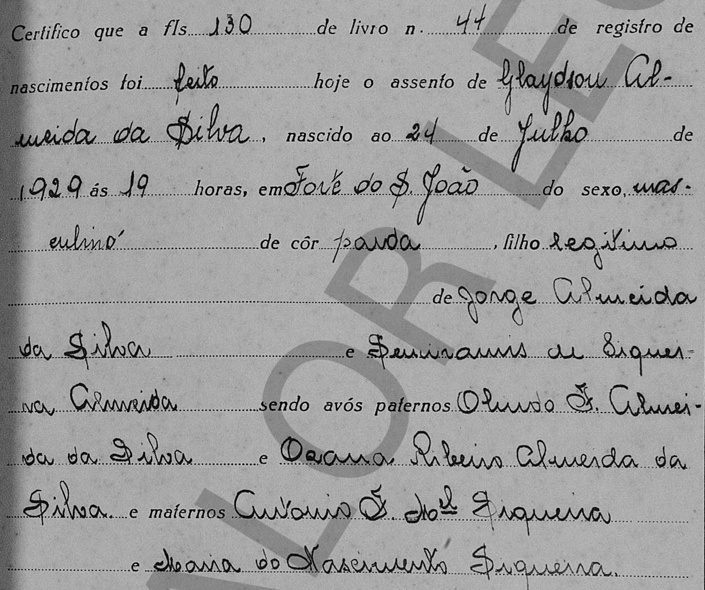 Certifico que a fls 130 de livro n. 44 de registro de
nascimentos foi feito hoje o assento de Glaydson Al-
meida da Silva, nascido ao 24 de Julho de
1929 ás 19 horas, em Forte do S. João do sexo, mas-
culino de côr parda, filho legitimo
de Jorge Almeida
da Silva e Semiramis de Siquei-
ra Almeida sendo avós paternos Olindo F. Almei-
da da Silva e Ribeiro Almeida da
Silva e maternos Antonio F. Siqueira
e Maria do Nascimento Siqueira.
VALOR LEG